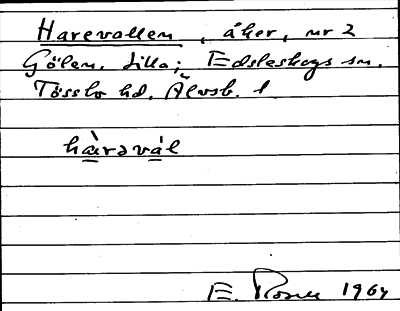 Harevallen, åker, nr 2
Gölen, Lilla; Edsleskogs sn.
Tössbo hd. Älvsb. l
hàrəvál
E. Rosell 1964